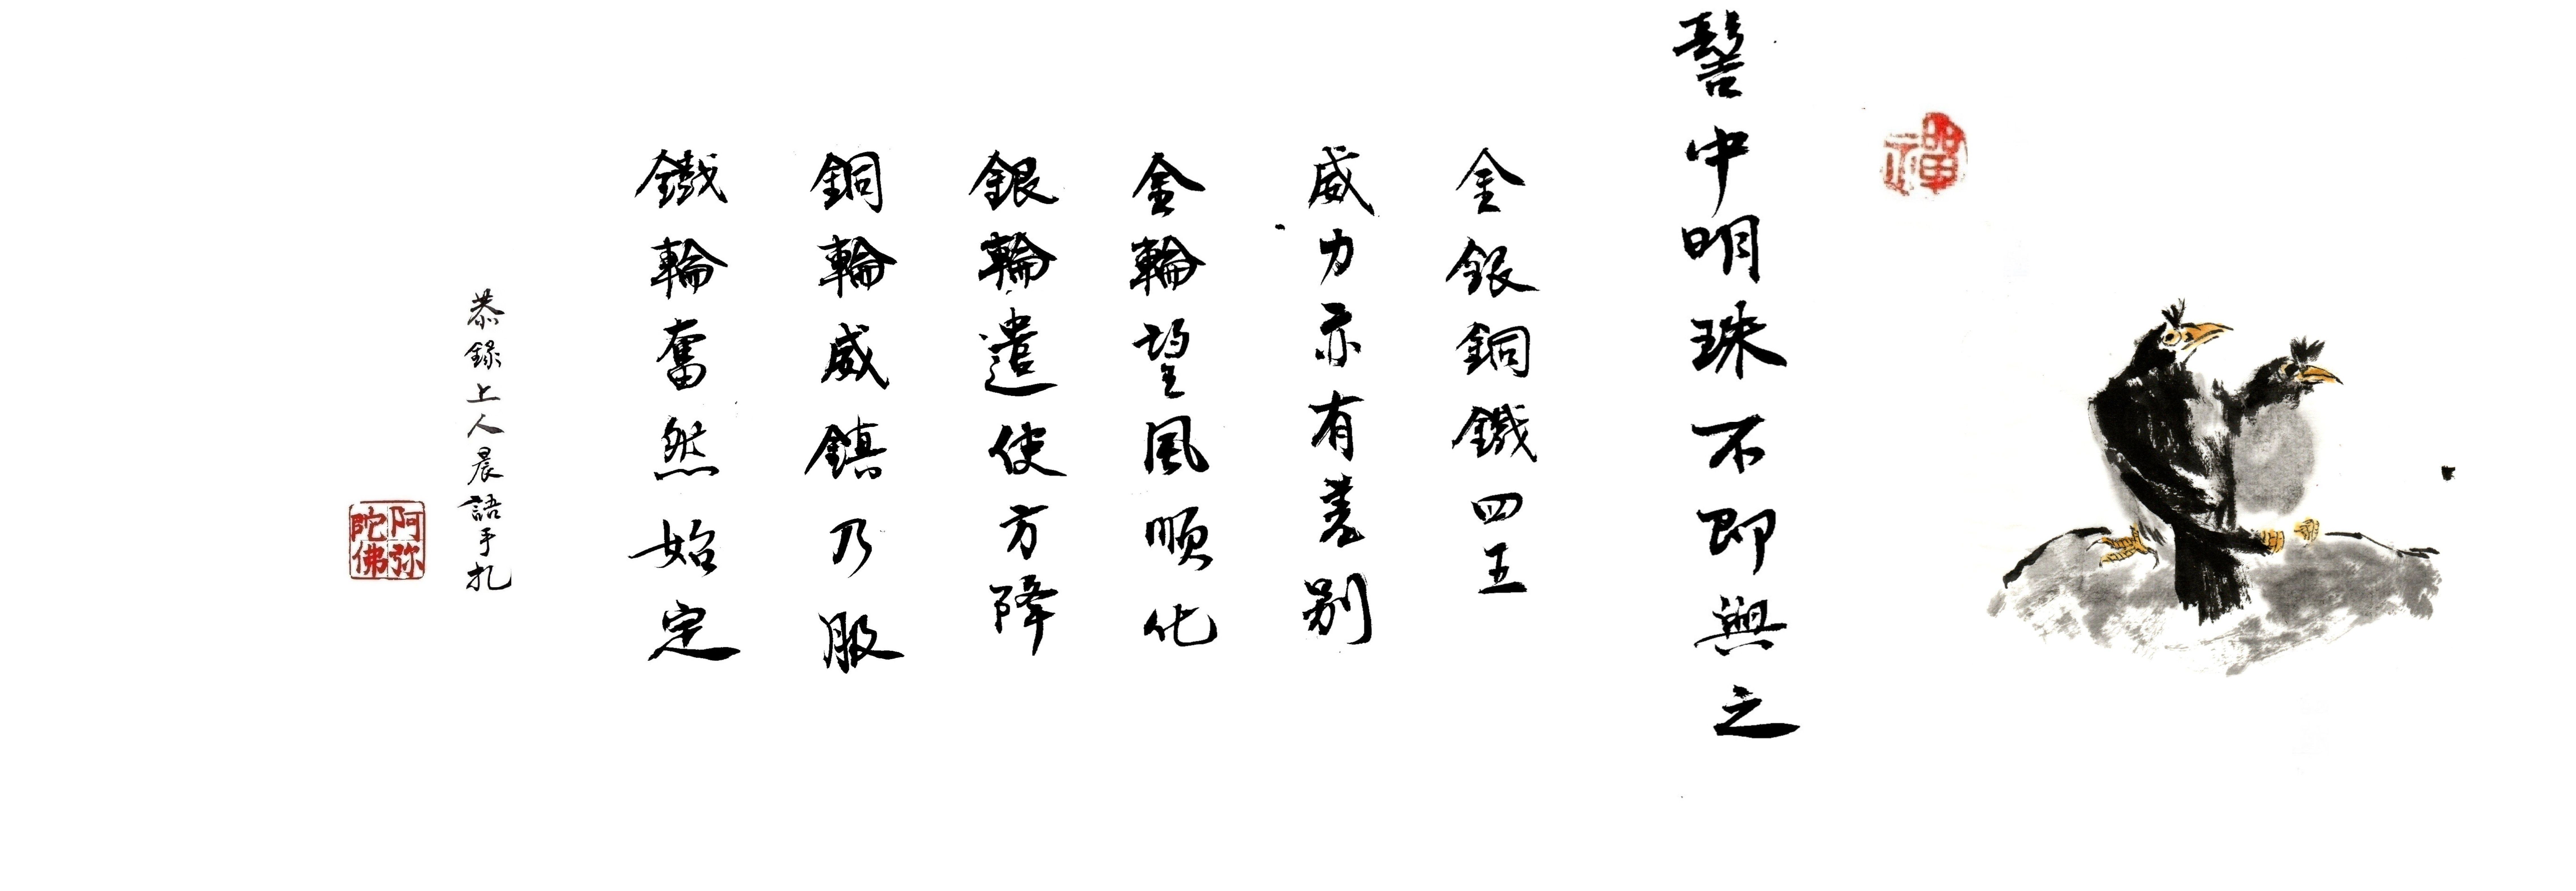 禪
髻中明珠不即與之
金銀銅鐵四王
威力亦有差別
金輪望風順化
銀輪遣使方降
銅輪威鎮乃服
鐵輪奮然始定
恭錄上人晨語手扎
阿弥陀佛